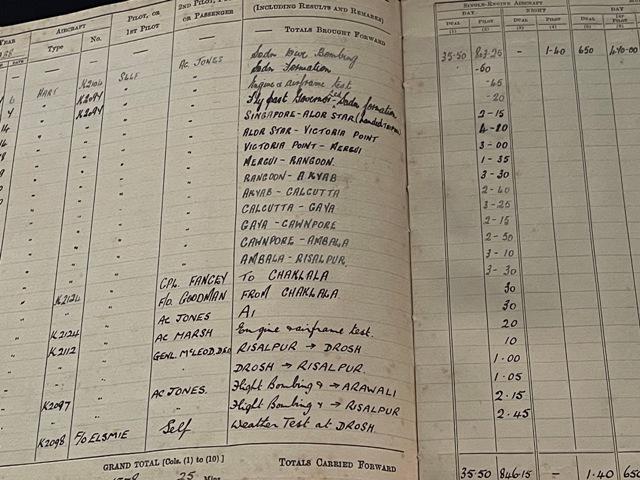 YEAR AIRCRAFT PILOT, OR 1ST PILOT 2ND PILOT, OR PASSENGER (INCLUDING RESULTS AND REMARKS) SINGLE-ENGINE AIRCRAFT
Type No. DAY NIGHT
DUAL PILOT DUAL PILOT DUAL 1ST PILOT
(1) (2) (3) (4) (5) (6)
— — — TOTALS BROUGHT FORWARD 35·50 - 1·40 650
HART SELF AC JONES Sqdn Bombing
Sqdn Formation
Engine & airframe test
K2094 Fly past Governor Sqdn formation
SINGAPORE-ALOR STAR 2-15
ALOR STAR - VICTORIA POINT
VICTORIA POINT - MERGUI 3-00
MERGUI - RANGOON. 1-35
RANGOON - AKYAB 3-30
AKYAB - CALCUTTA 2-40
CALCUTTA - GAYA 3-25
GAYA - CAWNPORE 2-15
CAWNPORE - AMBALA 2-50
AMBALA - RISALPUR. 3-10
CPL. FANCEY TO CHAKLALA 30
K2124 F/O. GOODMAN FROM CHAKLALA 30
AC JONES A1 20
K2124 AC MARSH Engine & airframe test. 10
K2112 GENL. McLEOD, D.S.O RISALPUR → DROSH 1·00
DROSH → RISALPUR. 1·05
AC JONES. Flight Bombing & → ARAWALI 2·15
K2097 Flight Bombing & → RISALPUR 2·45
K2098 F/O ELSMIE Self Weather Test at DROSH.
GRAND TOTAL [Cols. (1) to (10)] TOTALS CARRIED FORWARD 35·50 846·15 - 1·40 650
25 Mins.